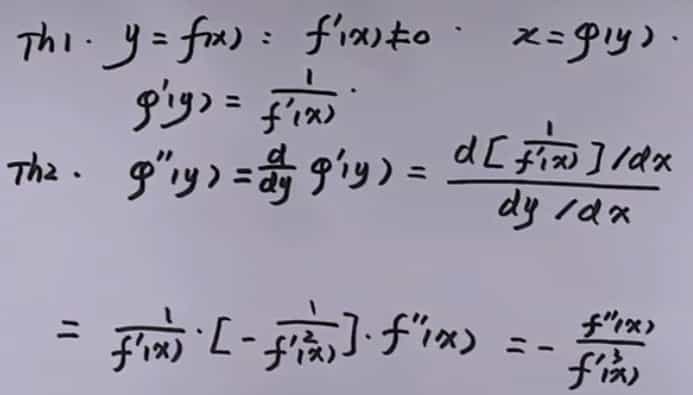 Th1. y = f(x) : f'(x) ≠ 0 . x = φ(y) .
φ'(y) = 1/f'(x) .
Th2. φ''(y) = d/dy φ'(y) = d[1/f'(x)]/dx / dy/dx
= 1/f'(x) · [- 1/f'²(x)] · f''(x) = - f''(x)/f'³(x)